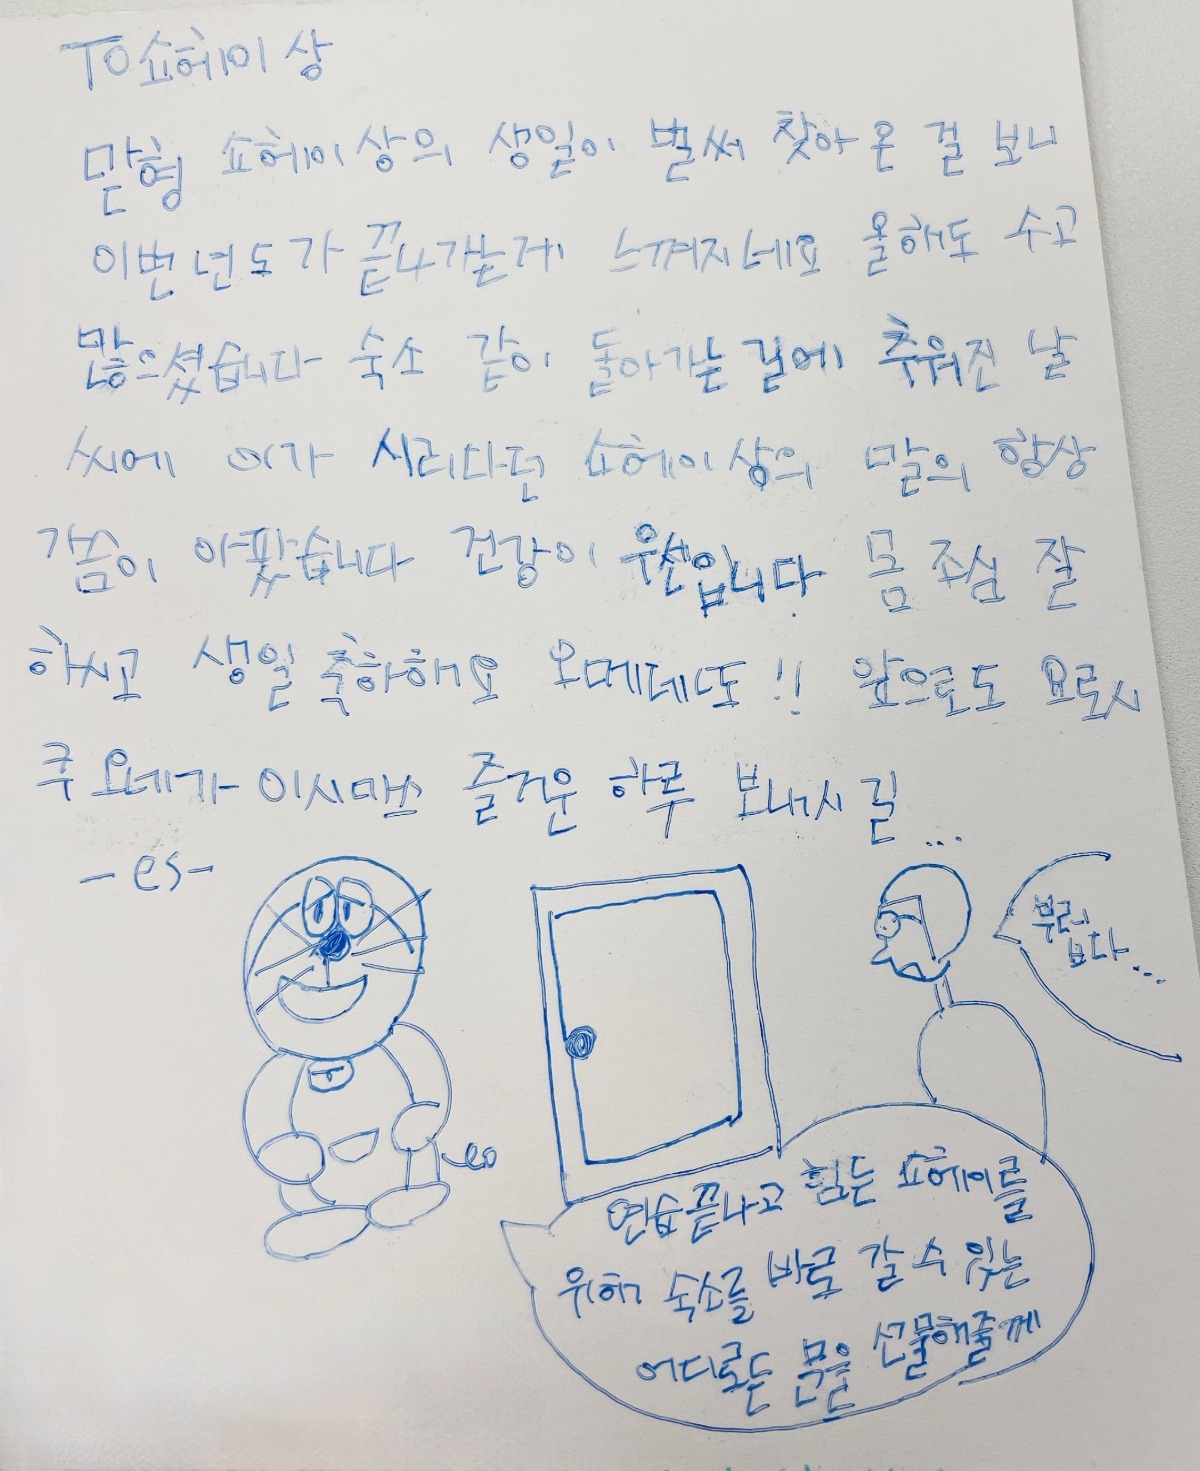 TO쇼헤이상
맏형 쇼헤이상의 생일이 벌써 찾아온 걸 보니
이번년도가 끝나가는게 느껴지네요 올해도 수고
많으셨습니다 숙소 같이 돌아가는 길에 추워진 날
씨에 이가 시리다던 쇼헤이상의 말의 항상
가슴이 아팠습니다 건강이 우선입니다 몸 조심 잘
하시고 생일 축하해요 오메데또!! 앞으로도 요로시
쿠 오네가이시마스 즐거운 하루 보내시길...
-es-
부럽
다...
연습끝나고 힘든 쇼헤이를
위해 숙소를 바로 갈 수 있는
어디로든 문을 선물해줄게